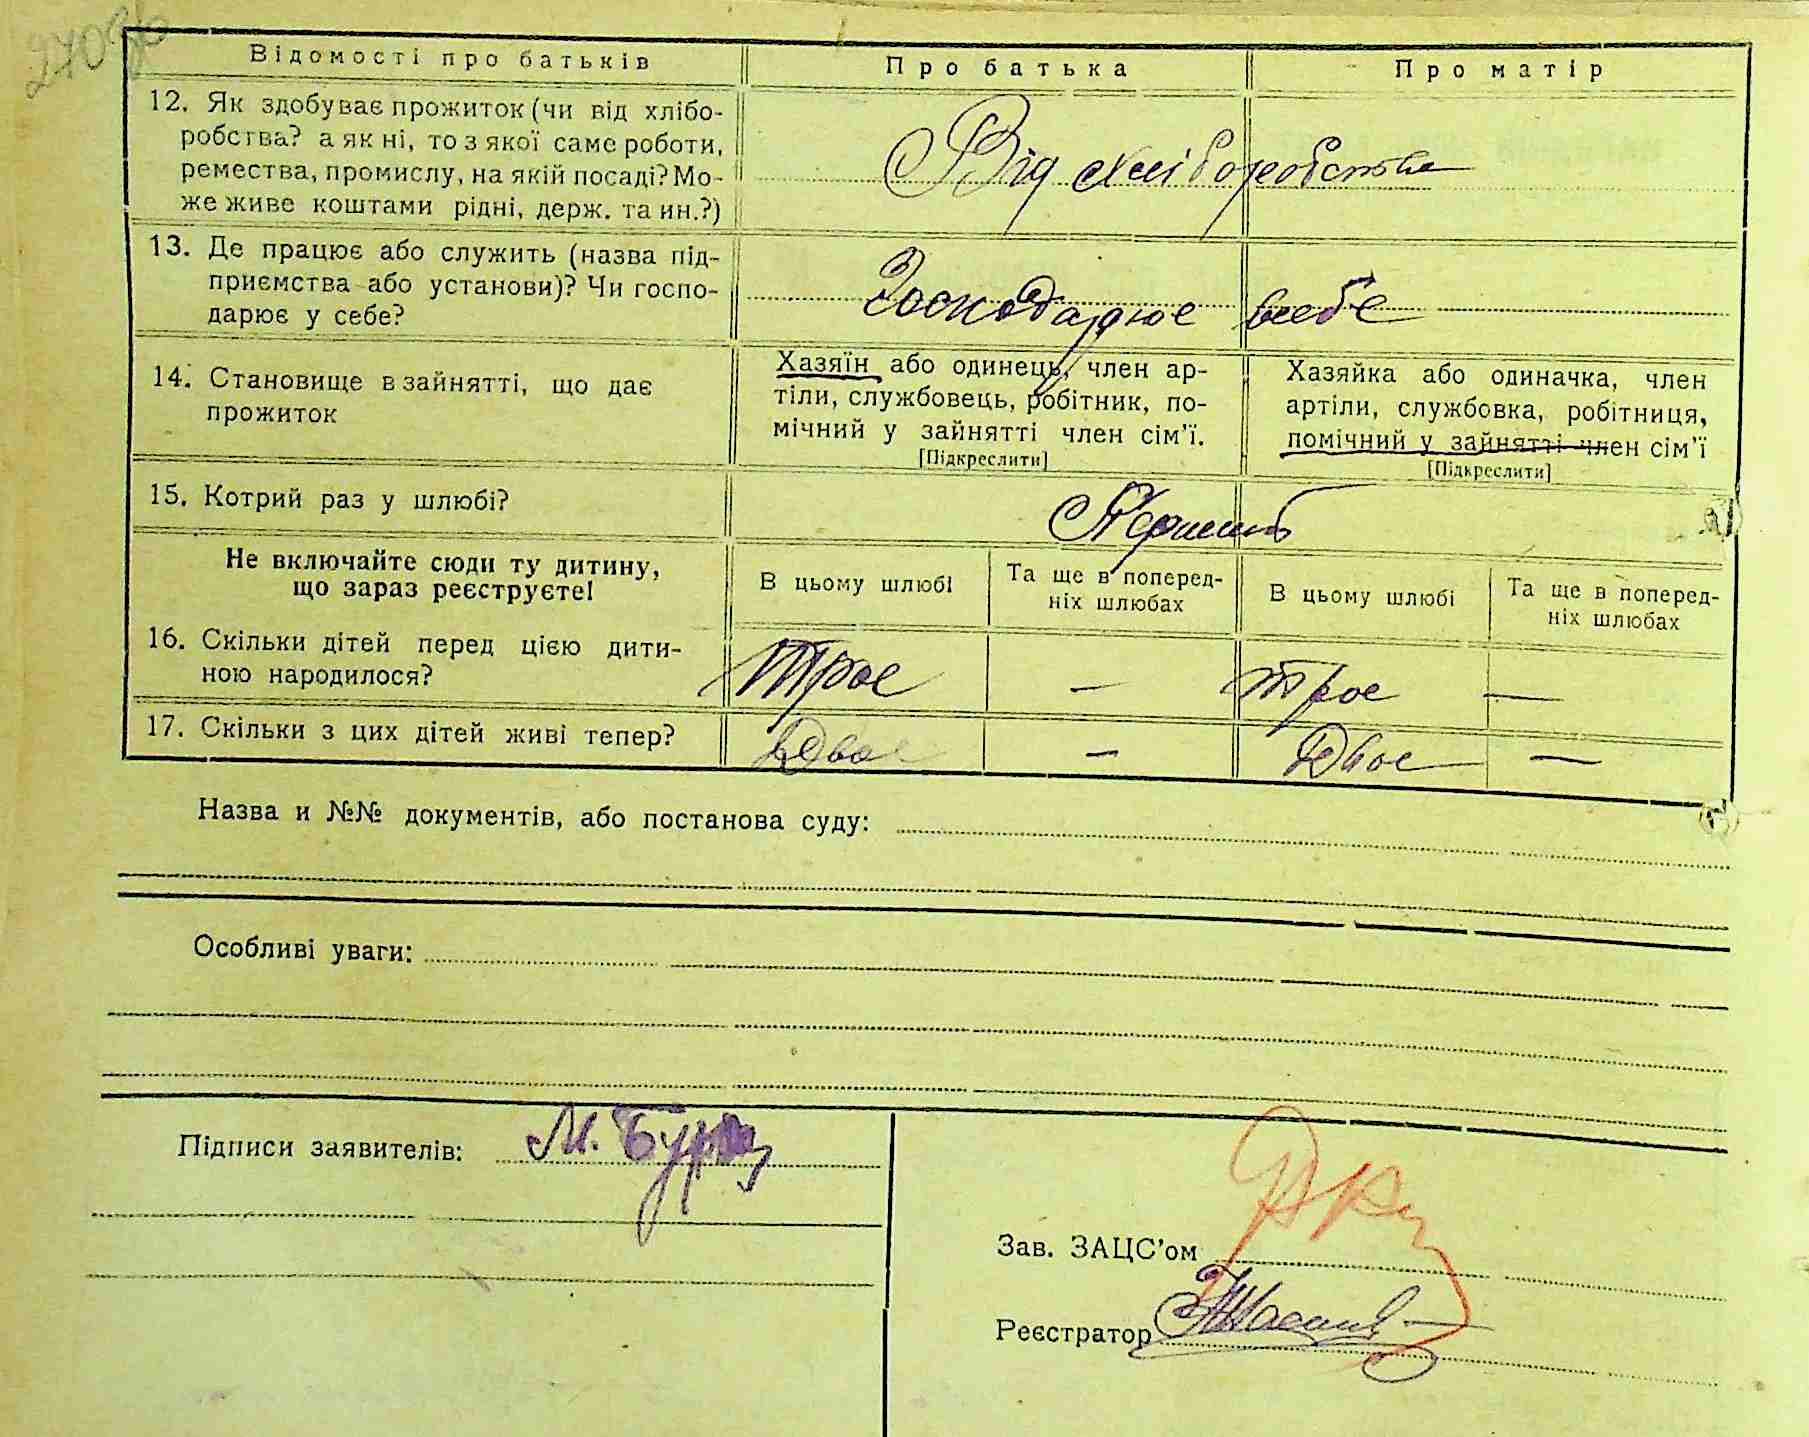 270 зв
Відомості про батьків Про батька Про матір
12. Як здобуває прожиток (чи від хлібо-
робства? а як ні, то з якої саме роботи,
ремества, промислу, на якій посаді? Мо-
же живе коштами рідні, держ. та ин.?)
Від хліборобства
13. Де працює або служить (назва під-
приємства або установи)? Чи госпо-
дарює у себе?
Господарює в себе
14. Становище в зайнятті, що дає
прожиток
Хазяїн або одинець, член ар-
тіли, службовець, робітник, по-
мічний у зайнятті член сім'ї.
[Підкреслити]
Хазяйка або одиначка, член
артіли, службовка, робітниця,
помічний у зайнятті член сім'ї
[Підкреслити]
15. Котрий раз у шлюбі?
Не включайте сюди ту дитину,
що зараз реєструєте!
В цьому шлюбі
Та ще в поперед-
ніх шлюбах
В цьому шлюбі
Та ще в поперед-
ніх шлюбах
16. Скільки дітей перед цією дити-
ною народилося?
Трое — трое —
17. Скільки з цих дітей живі тепер?
Двое — Двое —
Назва и №№ документів, або постанова суду:
Особливі уваги:
Підписи заявителів: М.
Зав. ЗАЦС'ом
Реєстратор